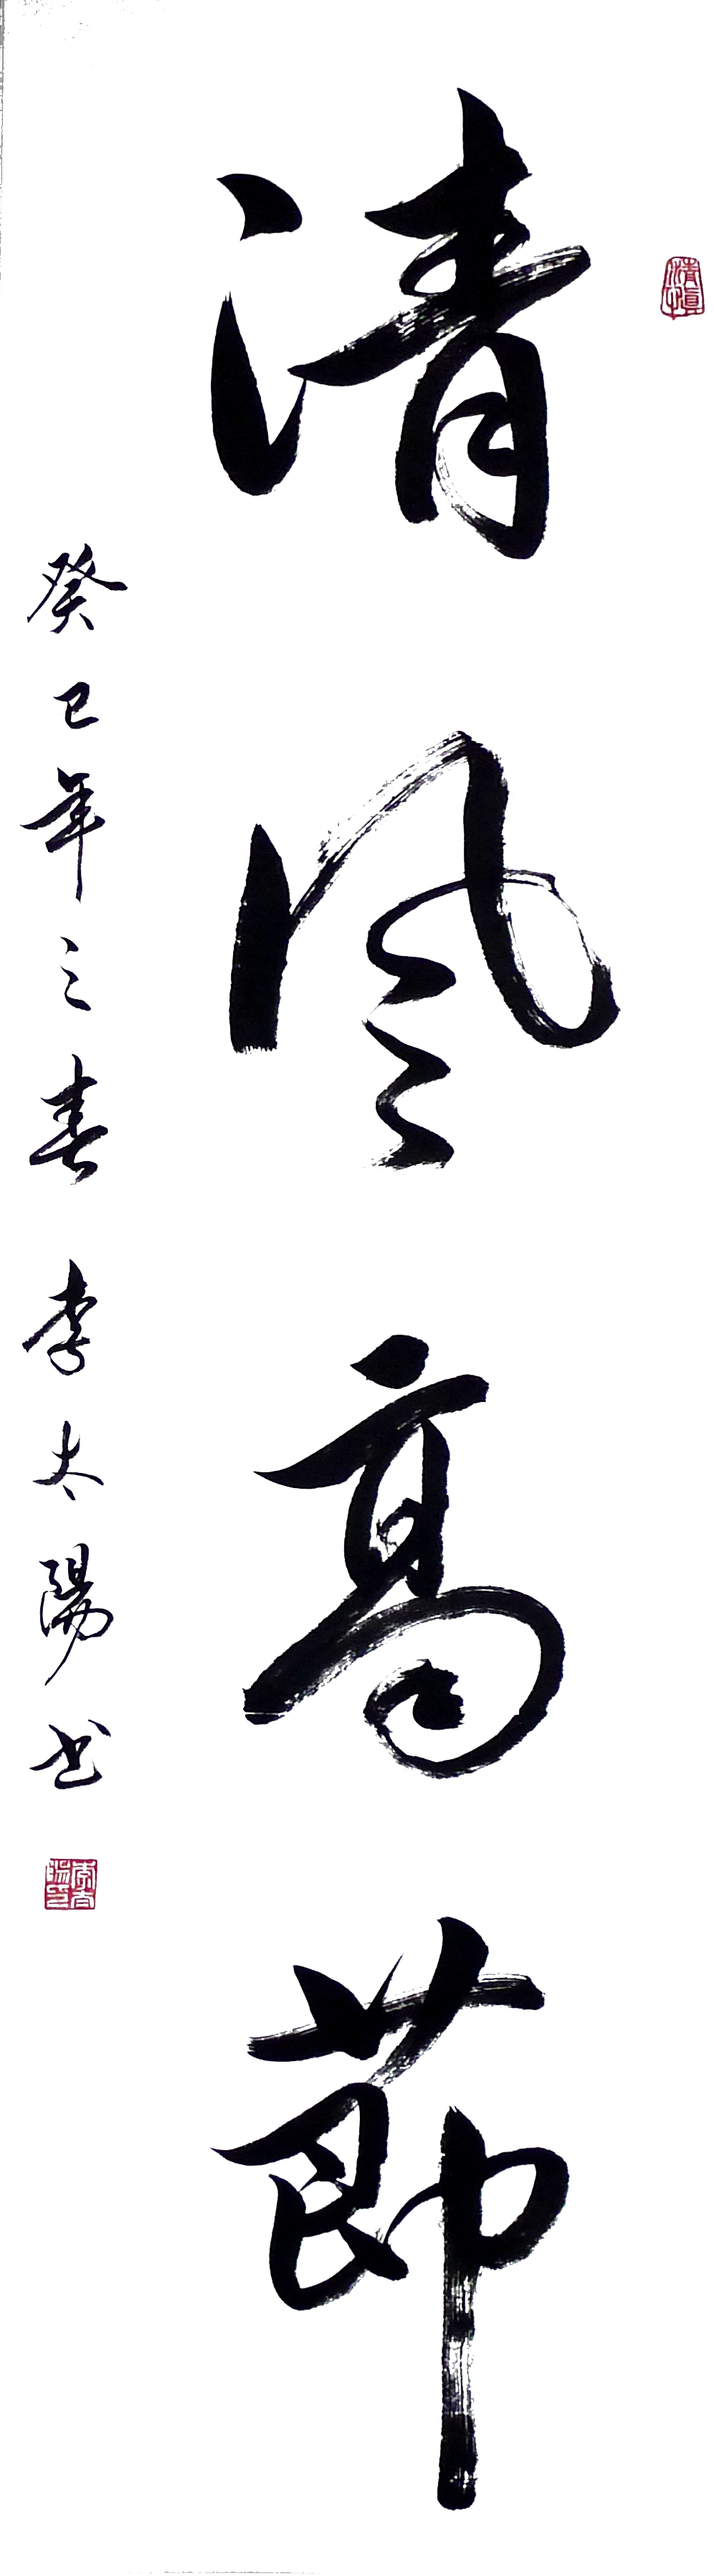 清風高節
癸巳年之春 李太陽书